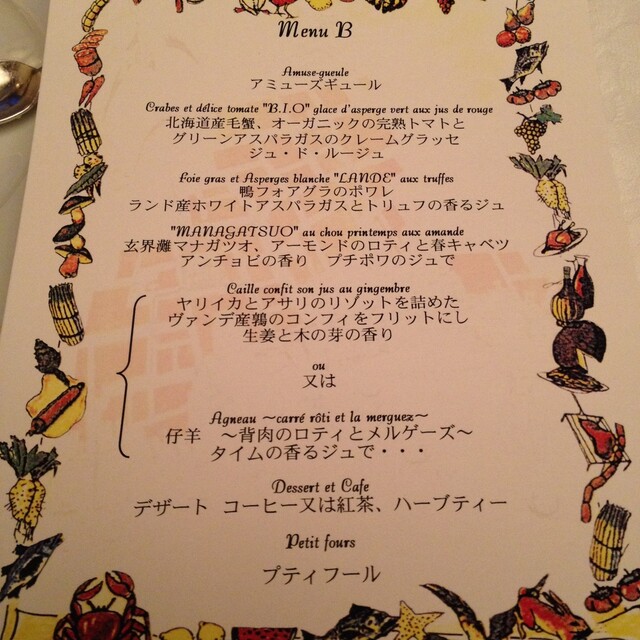 Menu B
Amuse-gueule
アミューズギュール
Crabes et délice tomate "B.I.O" glace d'asperge vert aux jus de rouge
北海道産毛蟹、オーガニックの完熟トマトと
グリーンアスパラガスのクレームグラッセ
ジュ・ド・ルージュ
Foie gras et Asperges blanche "LANDE" aux truffes
鴨フォアグラのポワレ
ランド産ホワイトアスパラガスとトリュフの香るジュ
"MANAGATSUO" au chou printemps aux amande
玄界灘マナガツオ、アーモンドのロティと春キャベツ
アンチョビの香り プチポワのジュで
Caille confit son jus au gingembre
ヤリイカとアサリのリゾットを詰めた
ヴァンデ産鶉のコンフィをフリットにし
生姜と木の芽の香り
ou
又は
Agneau ～carré rôti et la merguez～
仔羊 ～背肉のロティとメルゲーズ～
タイムの香るジュで・・・
Dessert et Cafe
デザート コーヒー又は紅茶、ハーブティー
Petit fours
プティフール